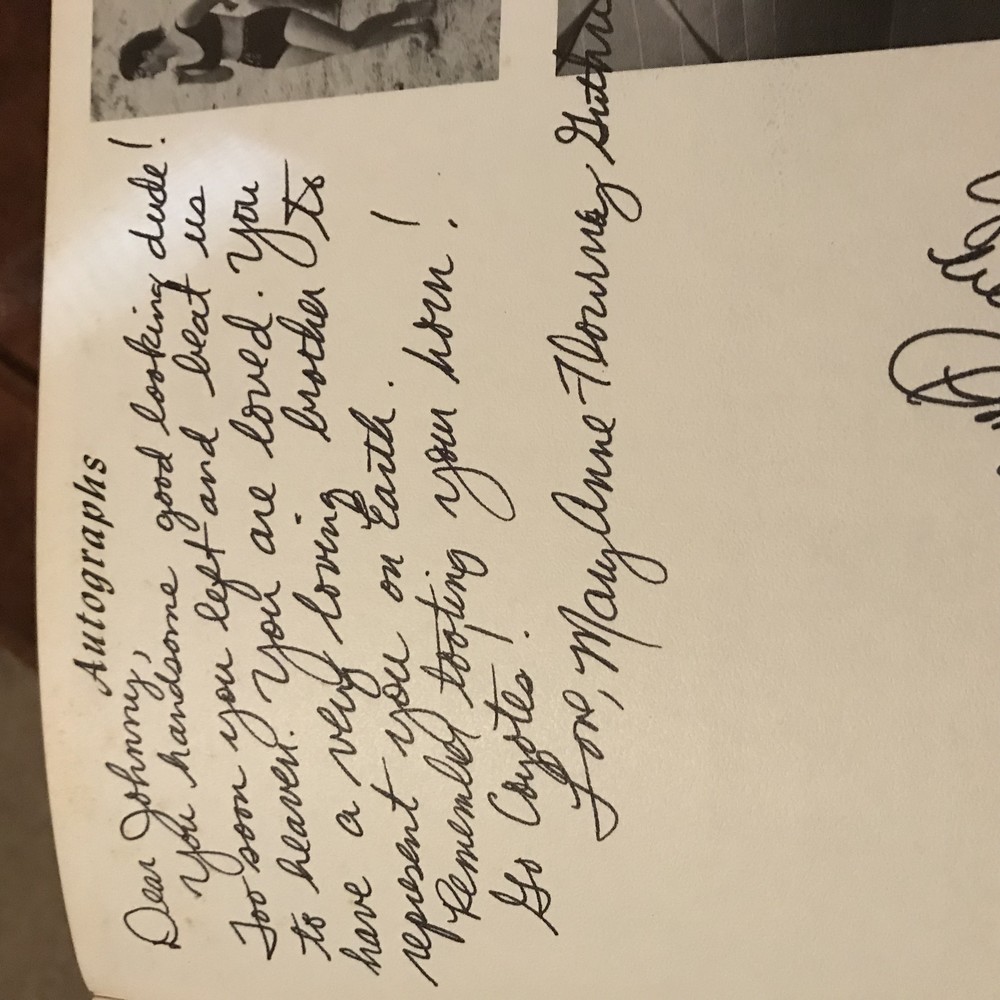 Autographs
Dear Johnny,
You handsome good looking dude!
Too soon you left and beat us
to heaven. You are loved. You
have a very loving brother to
represent you on Earth.
Remember tooting your horn!
Go Coyotes!
Love, Mary Anne